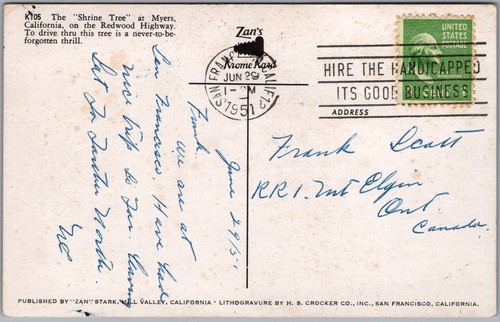 K105 The "Shrine Tree" at Myers,
California, on the Redwood Highway.
To drive thru this tree is a never-to-be-
forgotten thrill.
Zan's
Krome Kard
SAN FRANCISCO, CALIF.
JUN 29
1951
HIRE THE HANDICAPPED
ITS GOOD BUSINESS
UNITED
STATES
POSTAGE
ADDRESS
June 29/51
Frank
We are at
San Francisco, Have had
nice trip so far. Leaving
Sat for farther North.
Frank Scott
R R 1. Mt Elgin
Ont.
Canada.
PUBLISHED BY "ZAN" STARK, MILL VALLEY, CALIFORNIA - LITHOGRAVURE BY H. S. CROCKER CO., INC., SAN FRANCISCO, CALIFORNIA.